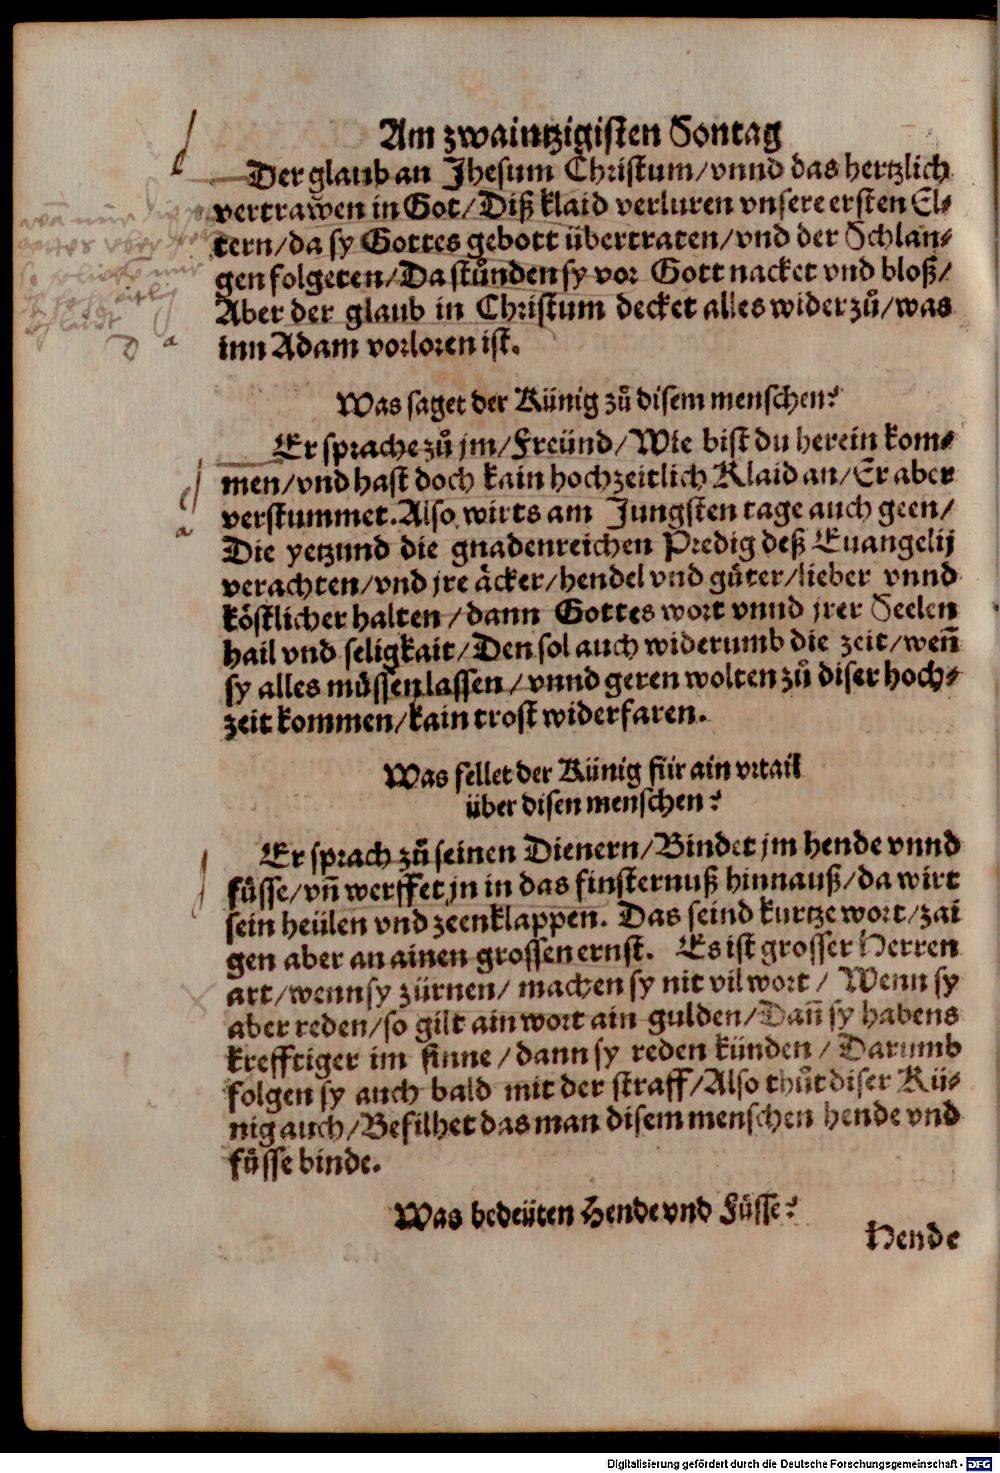 Am zwaintzigisten Sontag
Der glaub an Jhesum Christum/vnnd das hertzlich
vertrawen in Got/Diß klaid verluren vnsere ersten El⸗
tern/da sy Gottes gebott übertraten/vnd der Schlan⸗
gen folgeten/Da stůnden sy vor Gott nacket vnd bloß/
Aber der glaub in Christum decket alles wider zů/was
inn Adam vorloren ist.
Was saget der Künig zů disem menschen?
Er sprache zů jm/Freünd/Wie bist du herein kom⸗
men/vnd hast doch kain hochzeitlich Klaid an/Er aber
verstummet. Also wirts am Jungsten tage auch geen/
Die yetzund die gnadenreichen Predig deß Euangelij
verachten/vnd jre äcker/hendel vnd gůter/lieber vnnd
köstlicher halten/dann Gottes wort vnnd jrer Seelen
hail vnd seligkait/Den sol auch widerumb die zeit/weñ
sy alles můssen lassen/vnnd geren wolten zů diser hoch⸗
zeit kommen/kain trost widerfaren.
Was fellet der Künig für ain vrtail
über disen menschen?
Er sprach zů seinen Dienern/Bindet jm hende vnnd
fůsse/vñ werffet jn in das finsternuß hinnauß/da wirt
sein heülen vnd zeenklappen. Das seind kurtze wort/zai
gen aber an ainen grossen ernst. Es ist grosser Herren
art/wenn sy zürnen/machen sy nit vil wort/Wenn sy
aber reden/so gilt ain wort ain gulden/Dañ sy habens
krefftiger im sinne/dann sy reden künden/Darumb
folgen sy auch bald mit der straff/Also thůt diser Kü⸗
nig auch/Befilhet das man disem menschen hende vnd
fůsse binde.
Was bedeüten Hende vnd Fůsse?
Hende
Digitalisierung gefördert durch die Deutsche Forschungsgemeinschaft - DFG